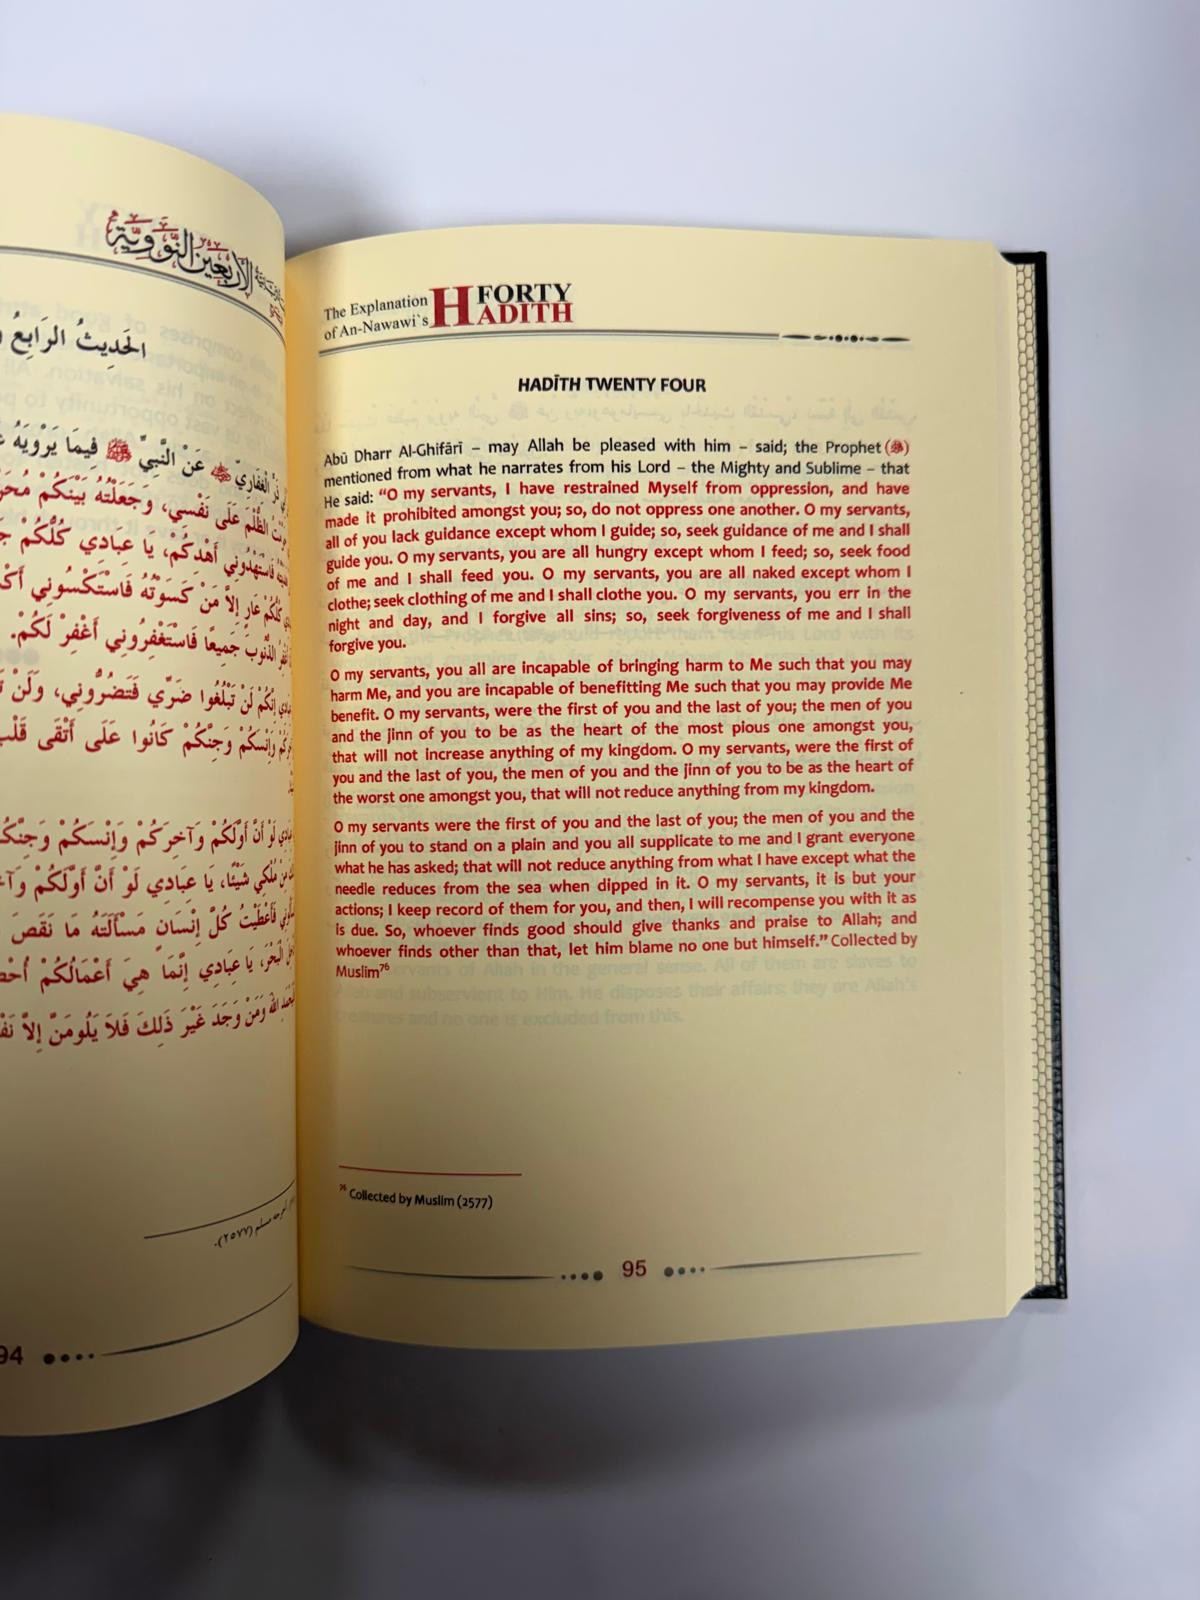 الأربعين النووية
الحَدِيثُ الرَّابِعُ
عَنْ النَّبِيِّ ﷺ فِيمَا يَرْوِيَهُ
الظُّلْمَ عَلَى نَفْسِي، وَجَعَلْتُهُ بَيْنَكُمْ
فَاسْتَهْدُونِي أَهْدِكُمْ، يَا عِبَادِي كُلُّكُمْ
كُلُّكُمْ عَارٍ إِلاَّ مَنْ كَسَوْتُهُ فَاسْتَكْسُونِي
الذُّنُوبَ جَمِيعًا فَاسْتَغْفِرُونِي أَغْفِرْ لَكُمْ.
إِنَّكُمْ لَنْ تَبْلُغُوا ضَرِّي فَتَضُرُّونِي، وَلَنْ
وَإِنْسَكُمْ وَجِنَّكُمْ كَانُوا عَلَى أَتْقَى قَلْبِ
لَوْ أَنَّ أَوَّلَكُمْ وَآخِرَكُمْ وَإِنْسَكُمْ
مِنْ مُلْكِي شَيْئًا، يَا عِبَادِي لَوْ أَنَّ أَوَّلَكُمْ
فَأَعْطَيْتُ كُلَّ إِنْسَانٍ مَسْأَلَتَهُ مَا نَقَصَ
الْبَحْرَ، يَا عِبَادِي إِنَّمَا هِيَ أَعْمَالُكُمْ
اللهَ وَمَنْ وَجَدَ غَيْرَ ذَلِكَ فَلاَ يَلُومَنَّ إِلاَّ
مسلم (٢٥٧٧).
94
The Explanation
of An-Nawawi`s
FORTY
HADITH
HADĪTH TWENTY FOUR
Abū Dharr Al-Ghifārī – may Allah be pleased with him – said; the Prophet (ﷺ)
mentioned from what he narrates from his Lord – the Mighty and Sublime – that
He said: “O my servants, I have restrained Myself from oppression, and have
made it prohibited amongst you; so, do not oppress one another. O my servants,
all of you lack guidance except whom I guide; so, seek guidance of me and I shall
guide you. O my servants, you are all hungry except whom I feed; so, seek food
of me and I shall feed you. O my servants, you are all naked except whom I
clothe; seek clothing of me and I shall clothe you. O my servants, you err in the
night and day, and I forgive all sins; so, seek forgiveness of me and I shall
forgive you.
O my servants, you all are incapable of bringing harm to Me such that you may
harm Me, and you are incapable of benefitting Me such that you may provide Me
benefit. O my servants, were the first of you and the last of you; the men of you
and the jinn of you to be as the heart of the most pious one amongst you,
that will not increase anything of my kingdom. O my servants, were the first of
you and the last of you, the men of you and the jinn of you to be as the heart of
the worst one amongst you, that will not reduce anything from my kingdom.
O my servants were the first of you and the last of you; the men of you and the
jinn of you to stand on a plain and you all supplicate to me and I grant everyone
what he has asked; that will not reduce anything from what I have except what the
needle reduces from the sea when dipped in it. O my servants, it is but your
actions; I keep record of them for you, and then, I will recompense you with it as
is due. So, whoever finds good should give thanks and praise to Allah; and
whoever finds other than that, let him blame no one but himself.” Collected by
Muslim⁷⁶
⁷⁶ Collected by Muslim (2577)
95